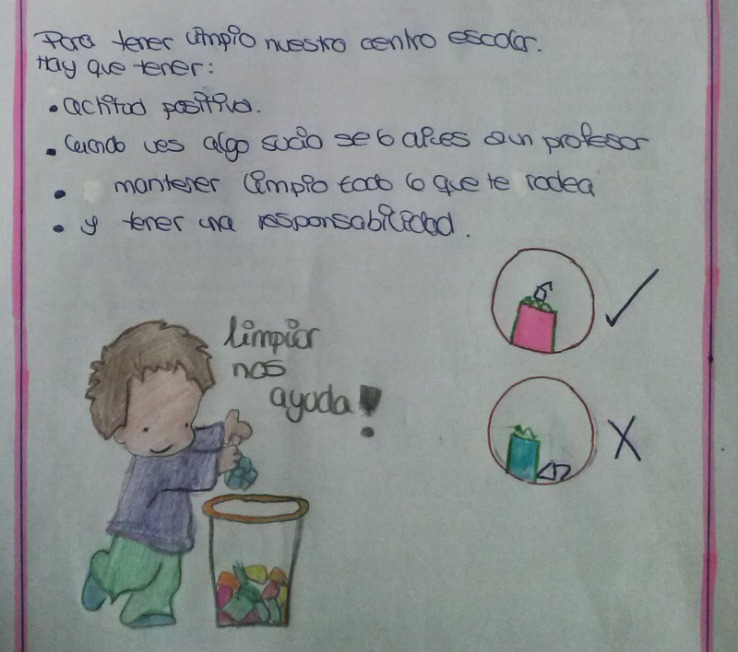 Para tener limpio nuestro centro escolar.
Hay que tener:
• actitud positiva.
• Cuando ves algo sucio se lo dices a un profesor
• mantener limpio todo lo que te rodea
• y tener una responsabilidad.
limpiar
nos
ayuda!